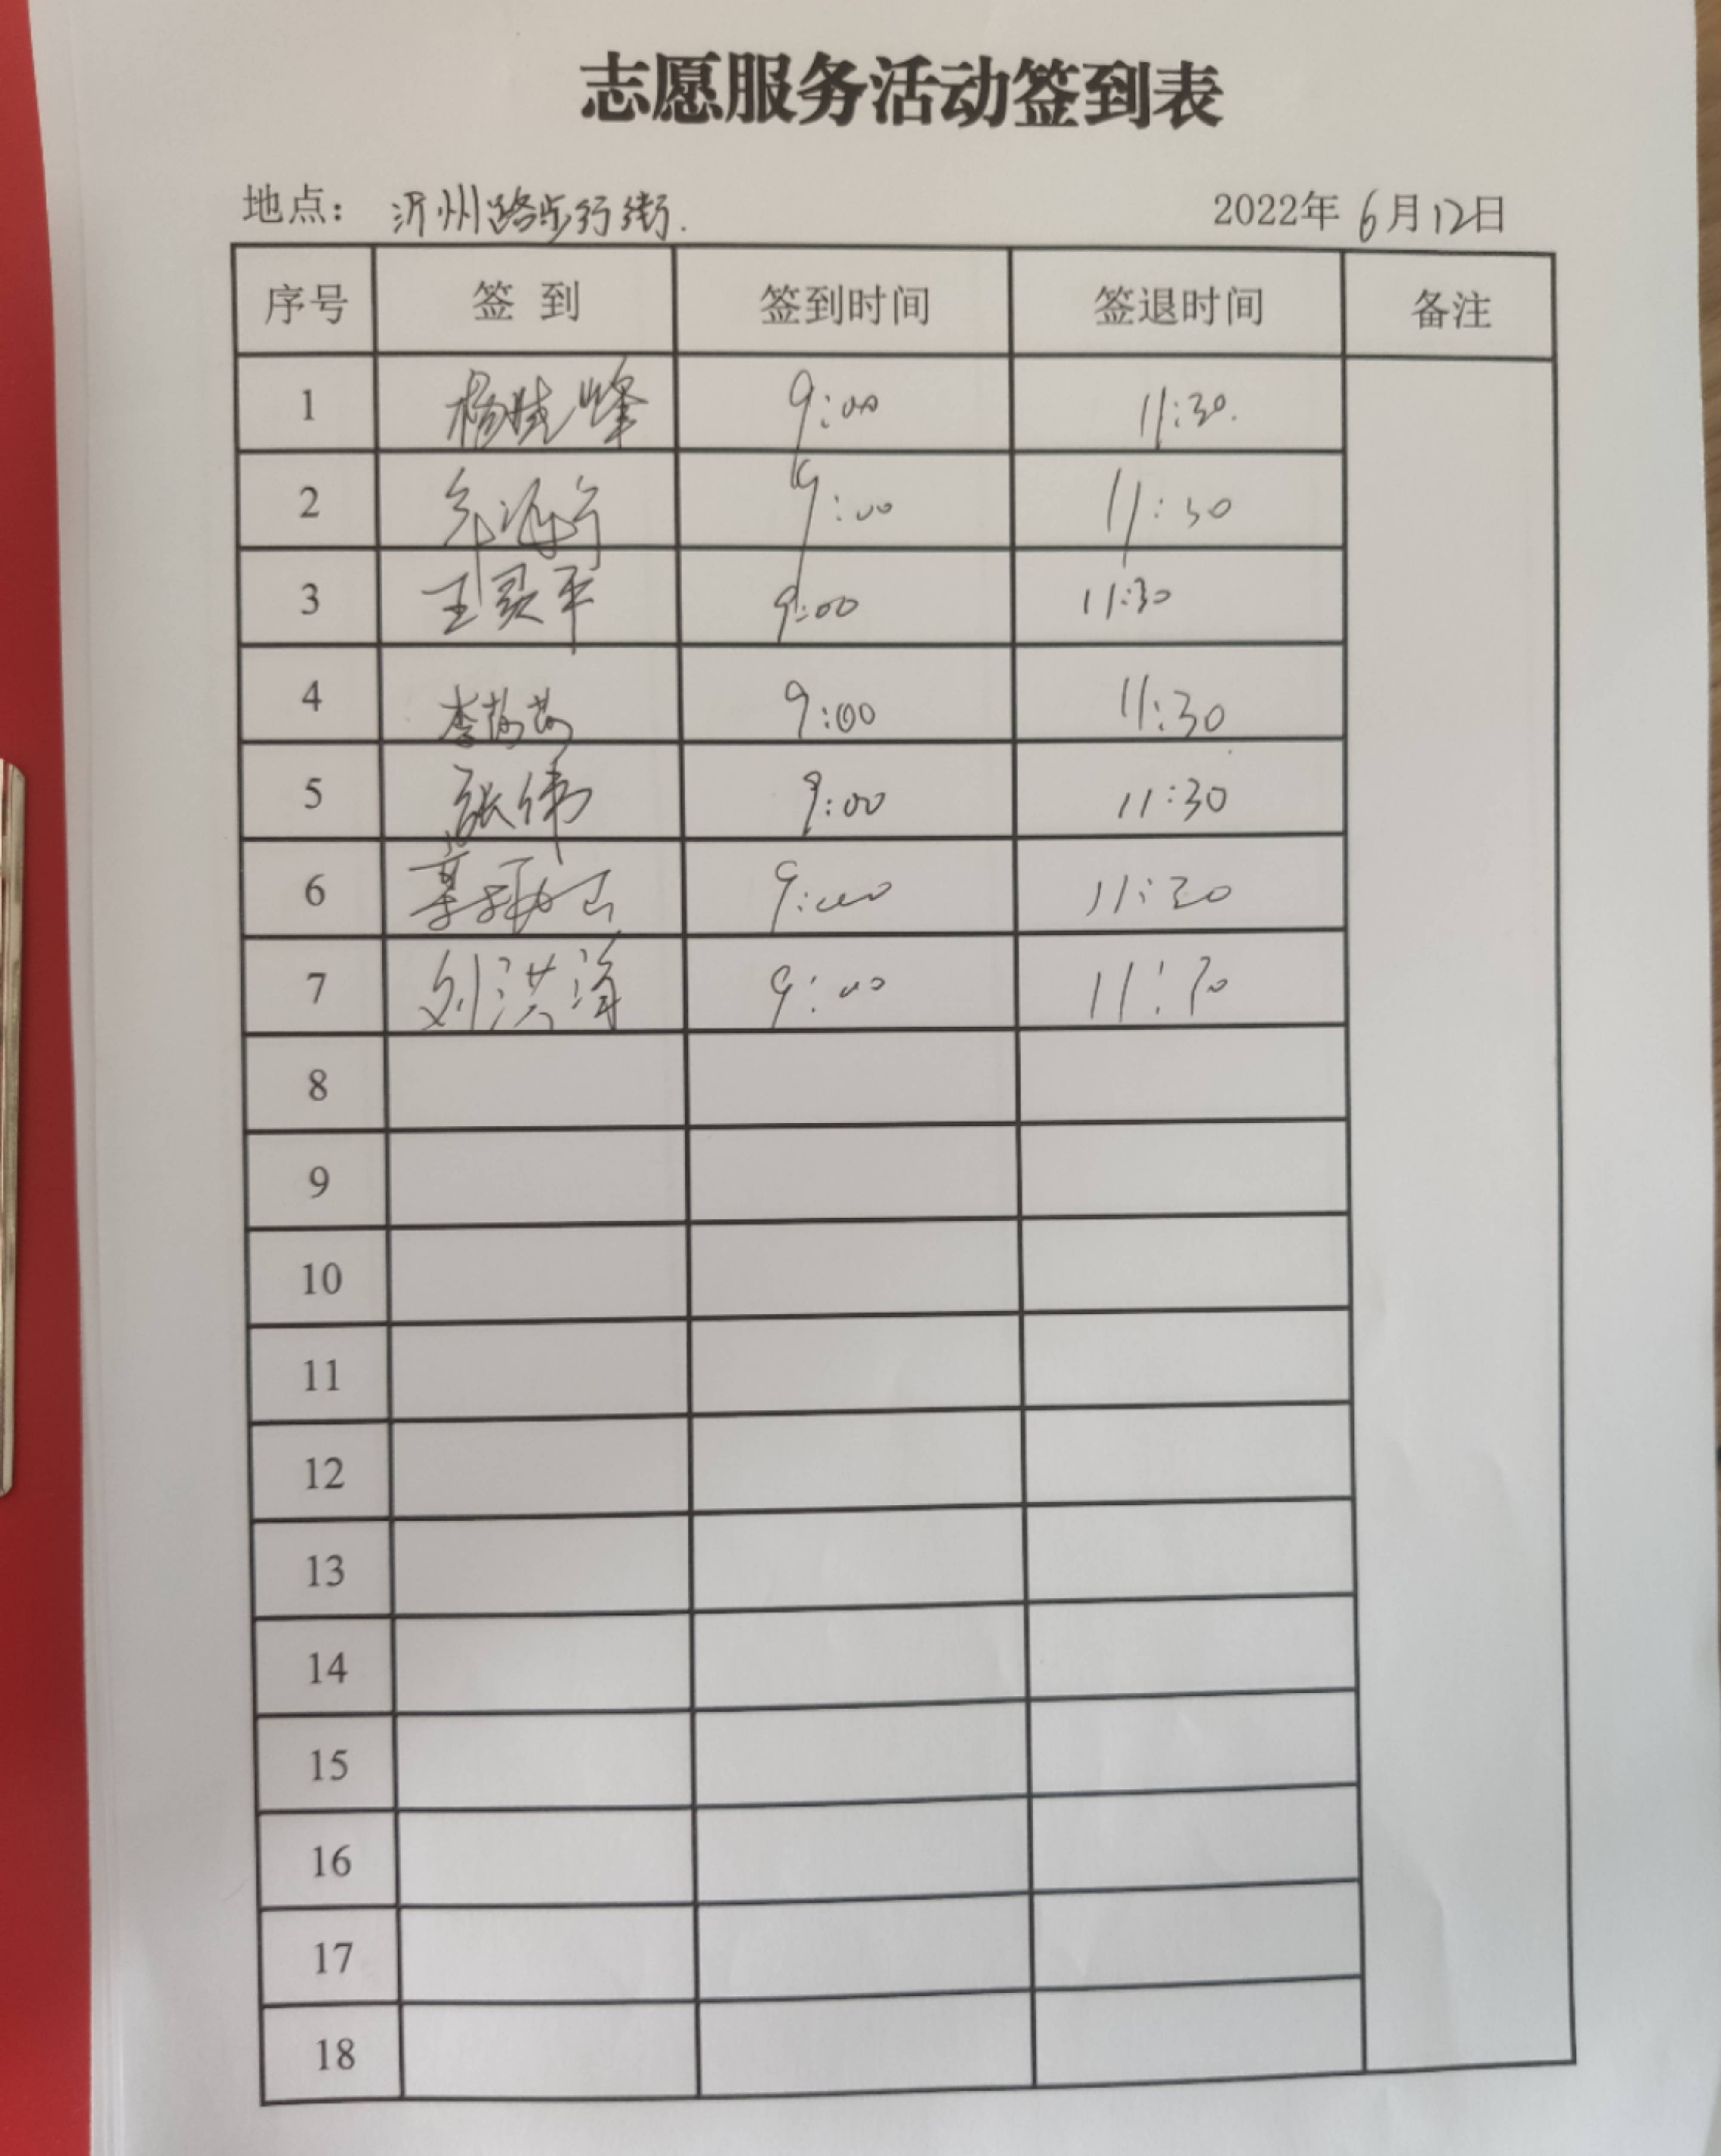 志愿服务活动签到表
地点： 沂州路步行街. 2022年 6月12日
序号 签 到 签到时间 签退时间 备注
1 杨晓峰 9:00 11:30.
2 9:00 11:30
3 王灵平 9:00 11:30
4 李荷荷 9:00 11:30
5 张伟 9:00 11:30
6 9:00 11:30
7 刘洪海 9:00 11:30
8
9
10
11
12
13
14
15
16
17
18